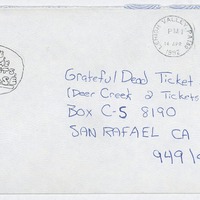 LEHIGH VALLEY PA
PM
1992
Grateful Dead Ticket
(Deer Creek 2 Tickets
BOX C-S 8190
SAN RAFAEL CA
949